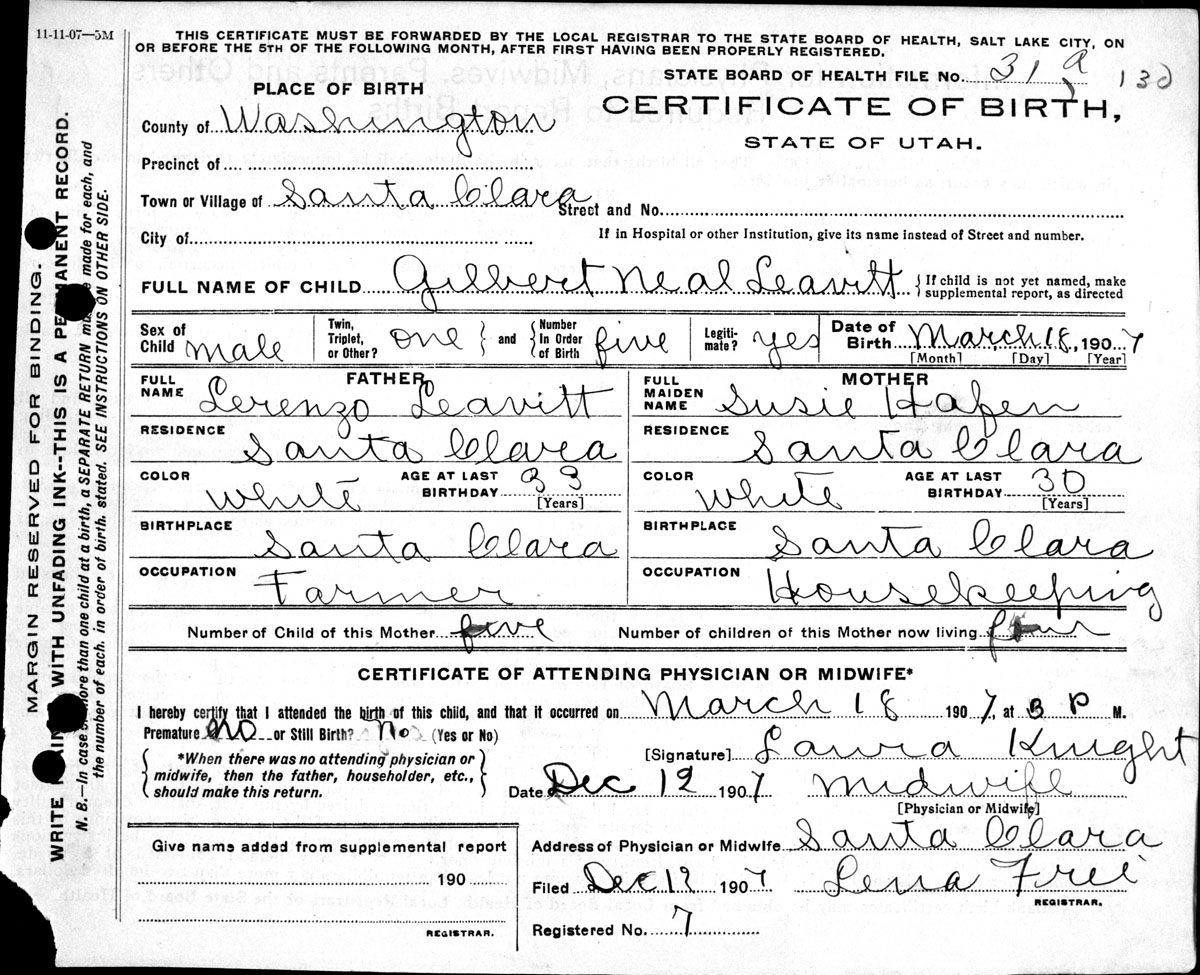 11-11-07—5M
THIS CERTIFICATE MUST BE FORWARDED BY THE LOCAL REGISTRAR TO THE STATE BOARD OF HEALTH, SALT LAKE CITY, ON
OR BEFORE THE 5TH OF THE FOLLOWING MONTH, AFTER FIRST HAVING BEEN PROPERLY REGISTERED.
STATE BOARD OF HEALTH FILE No. 31 a 130
PLACE OF BIRTH
CERTIFICATE OF BIRTH,
STATE OF UTAH.
County of Washington
Precinct of
Town or Village of Santa Clara Street and No.
City of If in Hospital or other Institution, give its name instead of Street and number.
FULL NAME OF CHILD Gilbert Neal Leavitt {If child is not yet named, make supplemental report, as directed
Sex of Child male Twin, Triplet, or Other? one } and { Number In Order of Birth five Legiti-mate? yes Date of Birth March 18, 1907
[Month] [Day] [Year]
FATHER MOTHER
FULL NAME Lerenzo Leavitt FULL MAIDEN NAME Susie Hafen
RESIDENCE Santa Clara RESIDENCE Santa Clara
COLOR White AGE AT LAST BIRTHDAY 33 [Years] COLOR White AGE AT LAST BIRTHDAY 30 [Years]
BIRTHPLACE Santa Clara BIRTHPLACE Santa Clara
OCCUPATION Farmer OCCUPATION Housekeeping
Number of Child of this Mother five Number of children of this Mother now living four
CERTIFICATE OF ATTENDING PHYSICIAN OR MIDWIFE*
I hereby certify that I attended the birth of this child, and that it occurred on March 18 1907, at 3 P M.
Premature No or Still Birth? No (Yes or No)
[Signature] Laura Knight
{ *When there was no attending physician or midwife, then the father, householder, etc., should make this return. }
Date Dec 12 1907 Midwife
[Physician or Midwife]
Give name added from supplemental report
190
REGISTRAR.
Address of Physician or Midwife Santa Clara
Filed Dec 12 1907 Lena Frei
REGISTRAR.
Registered No. 7
MARGIN RESERVED FOR BINDING.
WRITE WITH UNFADING INK--THIS IS A PERMANENT RECORD.
N. B.—In case more than one child at a birth, a SEPARATE RETURN made for each, and
the number of each, in order of birth, stated. SEE INSTRUCTIONS ON OTHER SIDE.